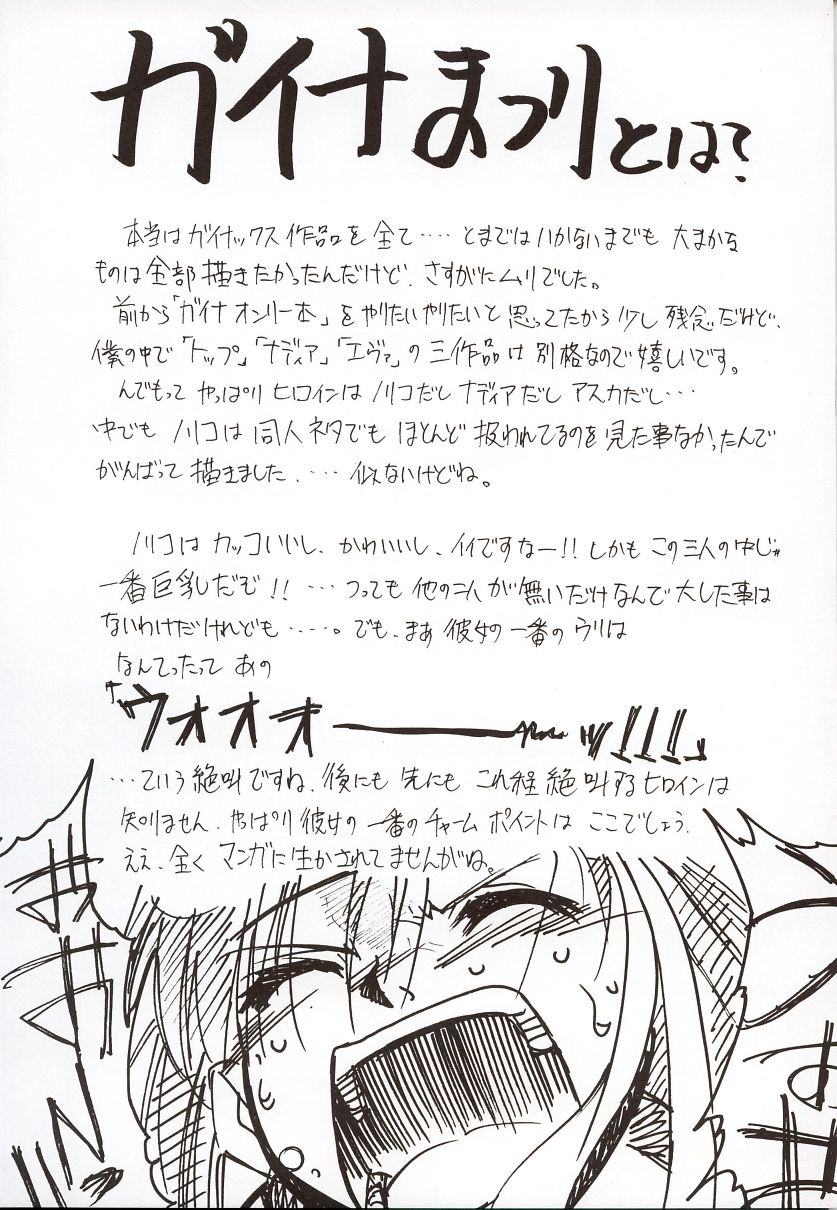 ガイナまつりとは?
本当はガイナックス作品を全て‥‥とまではいかないまでも大まかな
ものは全部描きたかったんだけど、さすがにムリでした。
前から「ガイナオンリー本」をやりたいやりたいと思ってたから少し残念だけど、
僕の中で「トップ」「ナディア」「エヴァ」の三作品は別格なので嬉しいです。
んでもって やっぱり ヒロインは ノリコだし ナディアだし アスカだし…
中でも ノリコは 同人ネタでも ほとんど 扱われてるのを 見た事なかったんで
がんばって 描きました、‥‥ 似ないけどね。
ノリコは カッコいいし、かわいいし、イイですなー!! しかも この三人の中じゃ
一番巨乳だぞ!! …つっても 他の二人が無いだけなんで大した事は
ないわけだけれども‥‥‥。でも、まあ 彼女の一番のウリは
なんてったって あの
「ウォオオーーーッ!!!」
…ていう絶叫ですね、後にも 先にも これ程 絶叫するヒロインは
知りません、やっぱり 彼女の 一番のチャーム ポイントは ここでしょう、
ええ、全く マンガに生かされてませんがね。